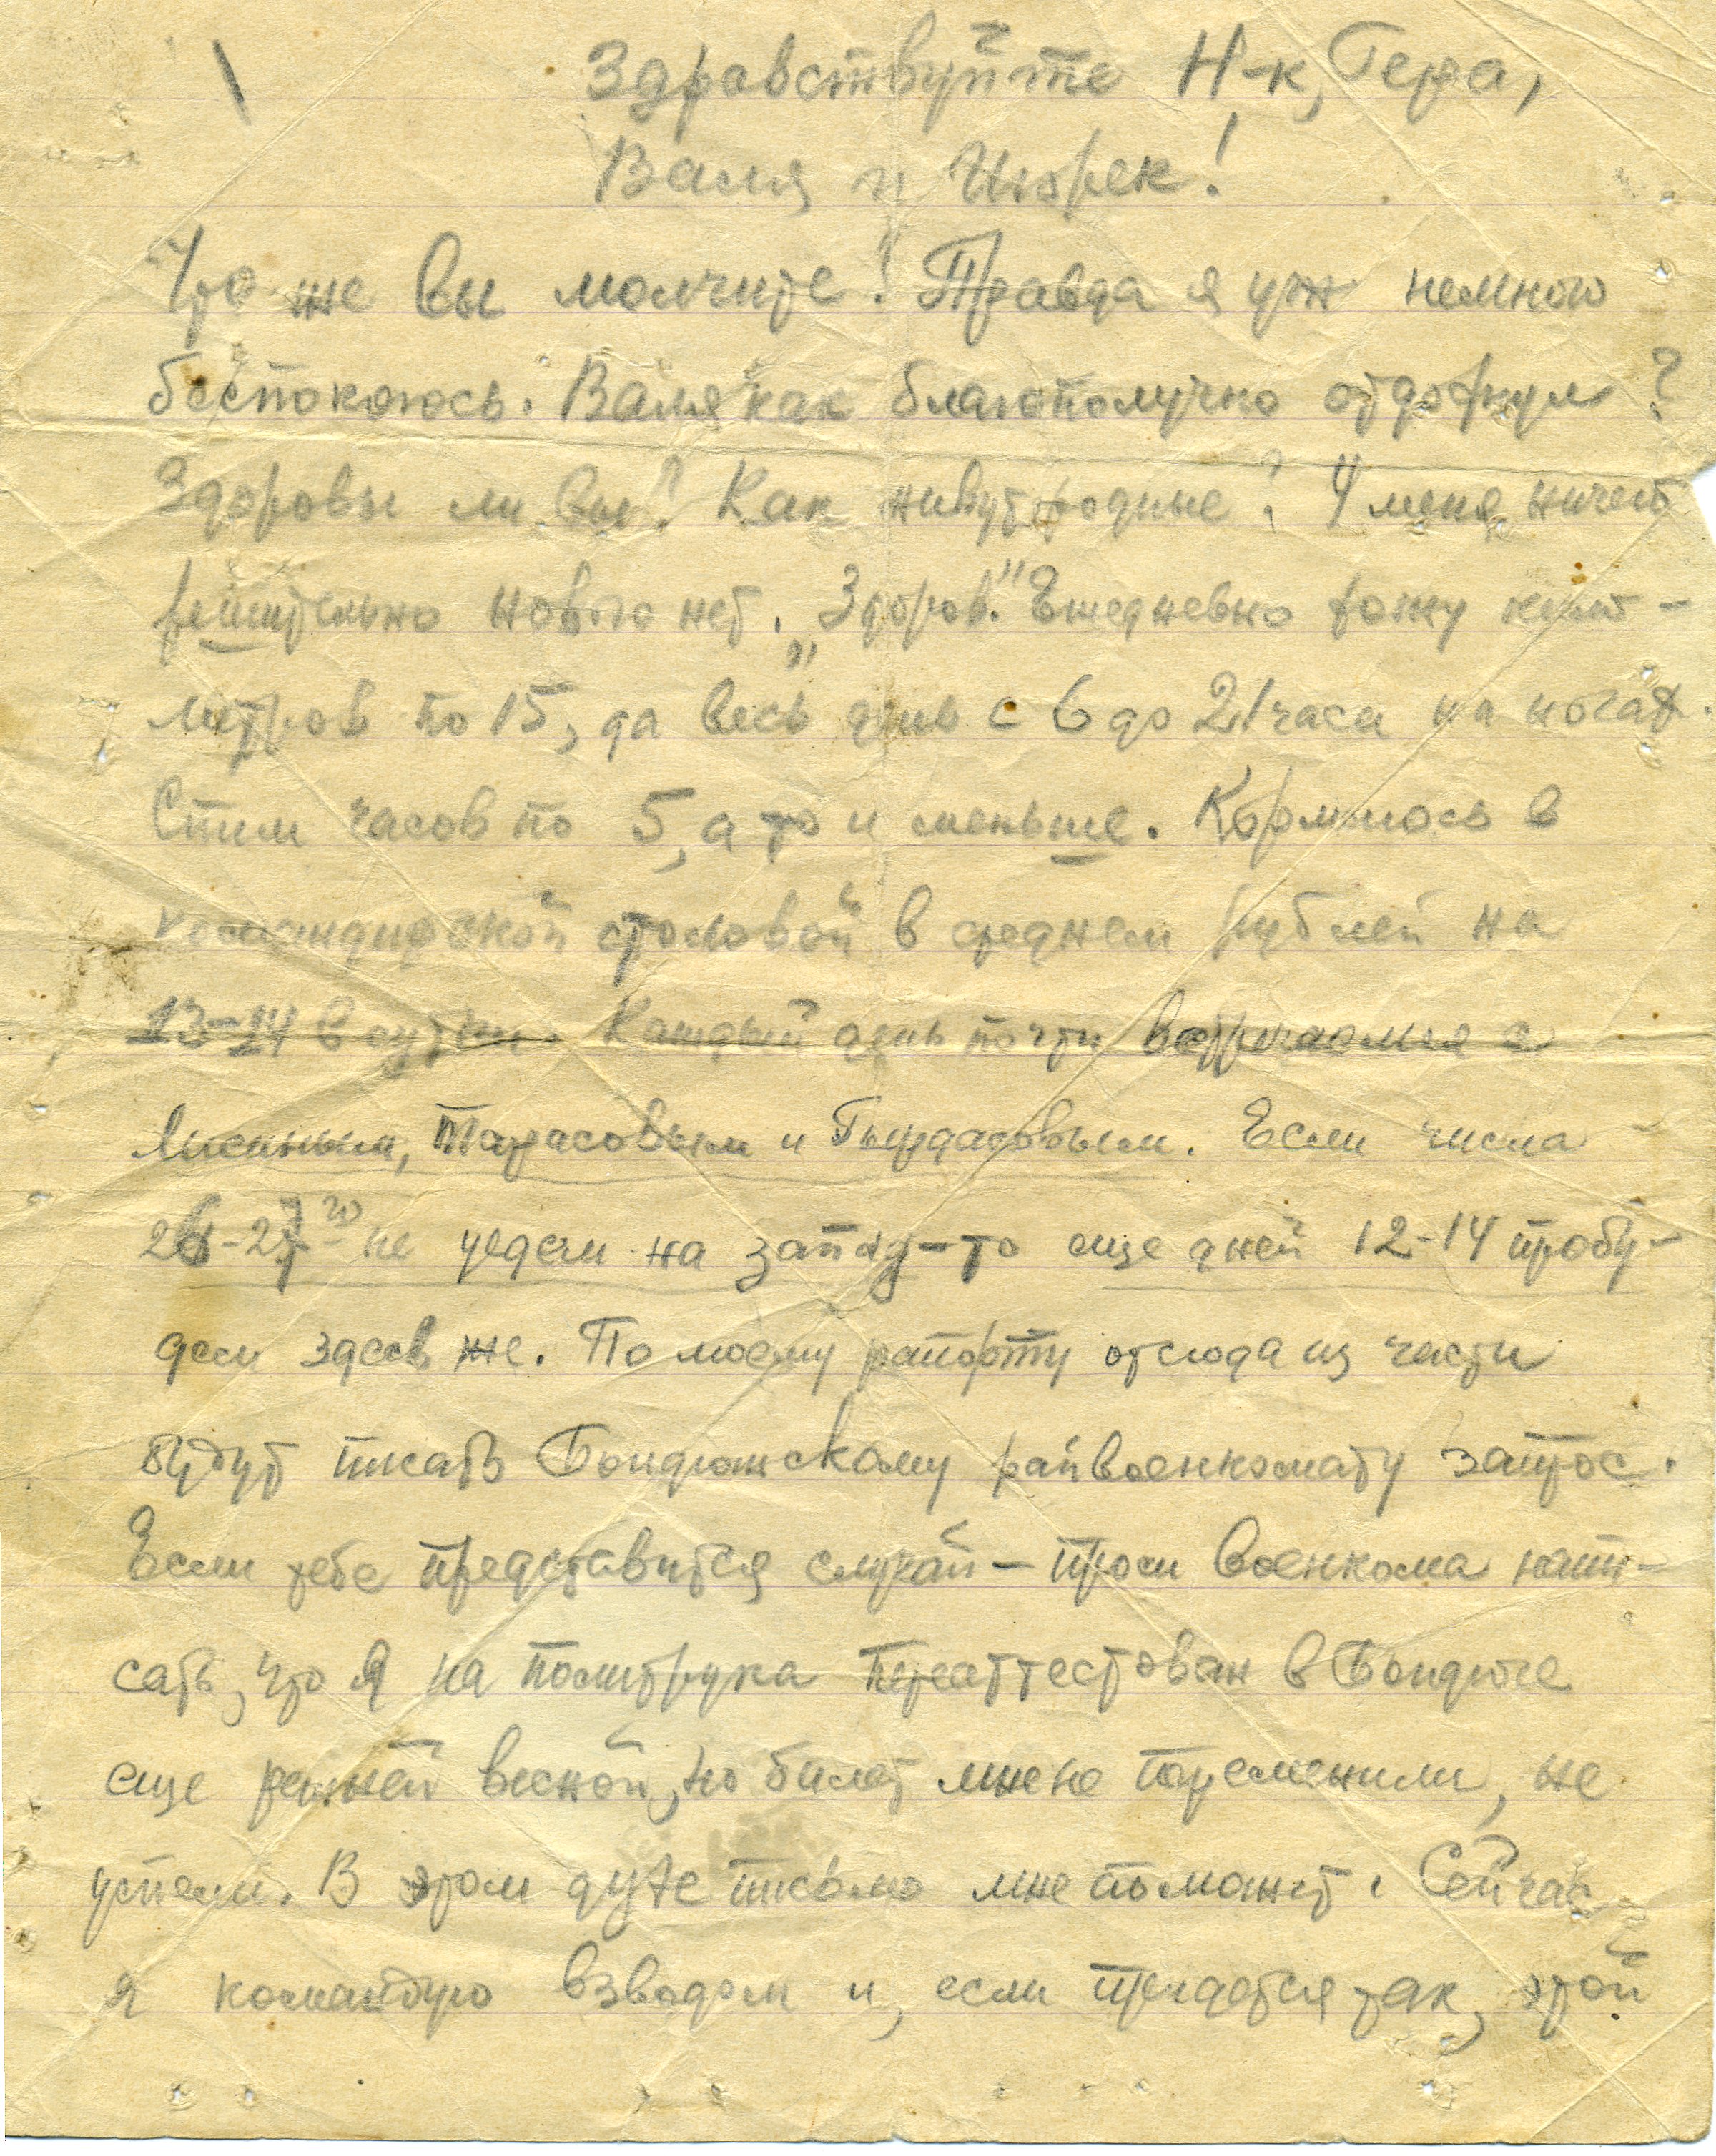 Здравствуйте Н-к, Гера,
Валя и Игорек!
Что же вы молчите! Правда я уж немного
беспокоюсь. Валя как благополучно отдохнул?
Здоровы ли вы? Как живут родные? У меня ничего
решительно нового нет. „Здоров." Ежедневно хожу кило-
метров по 15, да весь день с 6 до 21 часа на ногах.
Спим часов по 5, а то и меньше. Кормлюсь в
командирской столовой в среднем рублей на
13-14 в сутки. Каждый день почти встречаемся с
Лисиным, Тарасовым и Гындасовым. Если числа
26-27го не уедем на запад-то еще дней 12-14 пробу-
дем здесь же. По моему рапорту отсюда из части
будут писать Бондюжскому райвоенкомату запрос.
Если тебе представится случай - проси военкома напи-
сать, что я на политрука переаттестован в Бондюге
еще ранней весной, но билет мне не переменили, не
успели. В этом духе письмо мне поможет. Сейчас
я командую взводом и, если придется так, этой